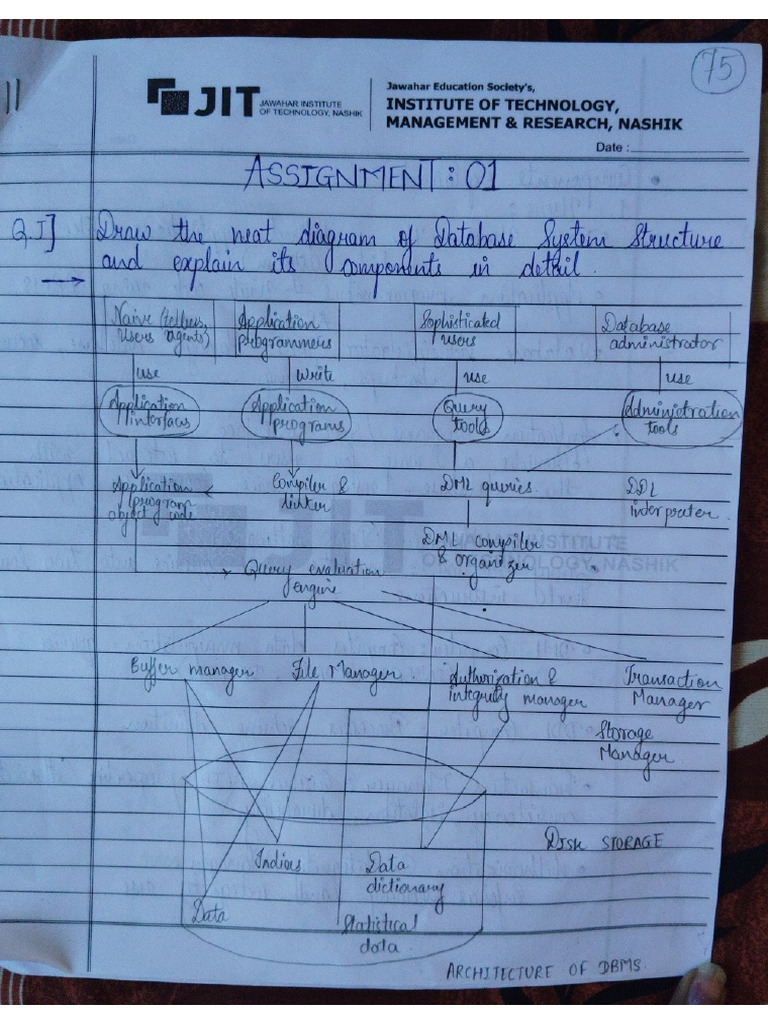 75
JIT JAWAHAR INSTITUTE OF TECHNOLOGY, NASHIK
Jawahar Education Society's,
INSTITUTE OF TECHNOLOGY,
MANAGEMENT & RESEARCH, NASHIK
Date :
ASSIGNMENT: 01
Q.I] Draw the neat diagram of Database System Structure
and explain its components in detail.
Naive (tellers, Application Sophisticated Database
Users agents) programmers users administrator
use write use use
Application Application Query Administration
interfaces programs tools tools
Application Compiler & DML queries DDL
program linker interpreter.
object code
DML compiler
& organizer
JIT
INSTITUTE
TECHNOLOGY, NASHIK
Query evaluation
engine
Buffer manager File Manager Authorization & Transaction
integrity manager Manager
Storage
Manager
DISK STORAGE
Indices Data
dictionary
Data Statistical
data.
ARCHITECTURE OF DBMS.